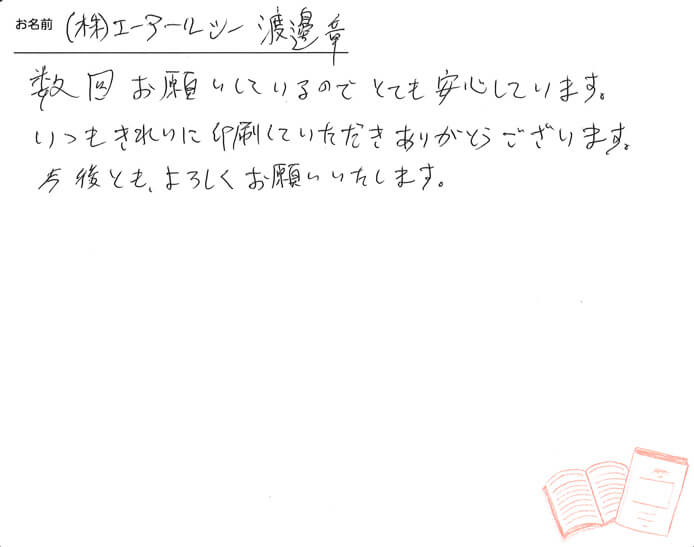 お名前 (株)エーアールシー 渡邊章
数回お願いしているのでとても安心しています。
いつもきれいに印刷していただきありがとうございます。
今後とも、よろしくお願いいたします。